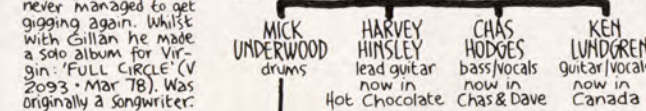 never managed to get
gigging again. Whilst
with Gillan he made
a solo album for Vir-
gin: 'FULL CIRCLE' (V
2093 • Mar 78). Was
originally a songwriter.
MICK
UNDERWOOD
drums
HARVEY
HINSLEY
lead guitar
now in
Hot Chocolate
CHAS
HODGES
bass/vocals
now in
Chas & Dave
KEN
LUNDGREN
guitar/vocals
now in
Canada